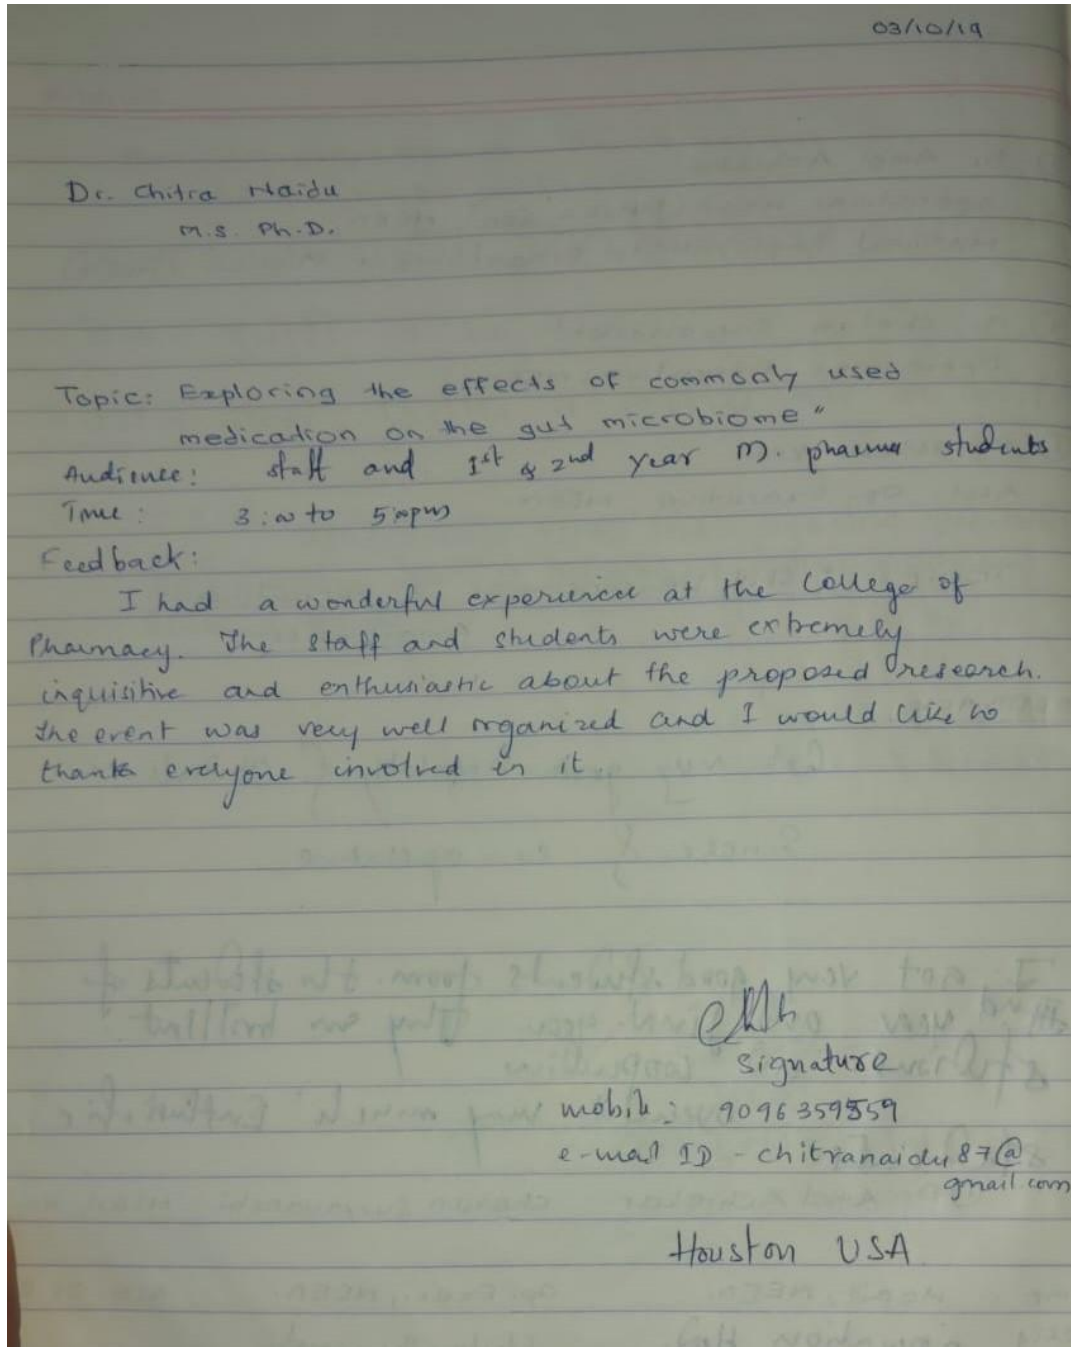 03/10/19
Dr. Chitra Naidu
M.S. Ph.D.
Topic: Exploring the effects of commonly used
medication on the gut microbiome"
Audience: staff and 1st & 2nd year M. pharma students
Time: 3:00 to 5:00pm
Feedback:
I had a wonderful experience at the College of
Pharmacy. The staff and students were extremely
inquisitive and enthusiastic about the proposed research.
The event was very well organized and I would like to
thank everyone involved in it.
signature
mobile: 9096359559
e-mail ID - chitranaidu87@
gmail.com
Houston USA